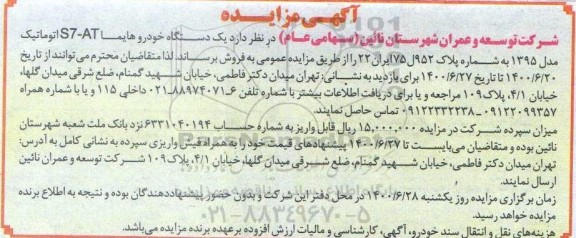 آگهی مزایده
شرکت توسعه و عمران شهرستان نائین (سهامی عام) در نظر دارد یک دستگاه خودرو هایما S7-AT اتوماتیک
مدل ۱۳۹۵ به شماره پلاک ۹۵۲ل۷۵ ایران ۲۲ را از طریق مزایده عمومی به فروش برساند. لذا متقاضیان محترم می‌توانند از تاریخ
۱۴۰۰/۶/۲۰ تا تاریخ ۱۴۰۰/۶/۲۷ برای بازدید به نشانی: تهران میدان دکتر فاطمی، خیابان شهید گمنام، ضلع شرقی میدان گلها،
خیابان ۴/۱، پلاک ۱۰۹ مراجعه و یا برای دریافت اطلاعات بیشتر با شماره تلفن ۶-۸۸۹۷۴۰۷۱-۰۲۱ داخلی ۱۱۵ و یا با شماره همراه
۰۹۱۲۲۰۹۹۳۵۷-۰۹۱۲۲۳۳۲۲۳۸ تماس حاصل نمایند.
میزان سپرده شرکت در مزایده ۱۵,۰۰۰,۰۰۰ ریال قابل واریز به شماره حساب ۶۳۳۱۰۴۰۱۹۴ نزد بانک ملت شعبه شهرستان
نائین بوده و متقاضیان می‌بایست تا ۱۴۰۰/۶/۲۷ پیشنهادهای قیمت خود را به همراه فیش واریزی سپرده به نشانی کامل به آدرس:
تهران میدان دکتر فاطمی، خیابان شهید گمنام، ضلع شرقی میدان گلها، خیابان ۴/۱، پلاک ۱۰۹ شرکت توسعه و عمران نائین
ارسال نمایند.
زمان برگزاری مزایده روز یکشنبه ۱۴۰۰/۶/۲۸ در محل دفتر این شرکت و بدون حضور پیشنهاددهندگان بوده و نتیجه به اطلاع برنده
مزایده خواهد رسید.
هزینه‌های نقل و انتقال سند خودرو، آگهی، کارشناسی و مالیات ارزش افزوده برعهده برنده مزایده می‌باشد.
۰۲۱-۸۸۳۴۹۶۷۰-۵